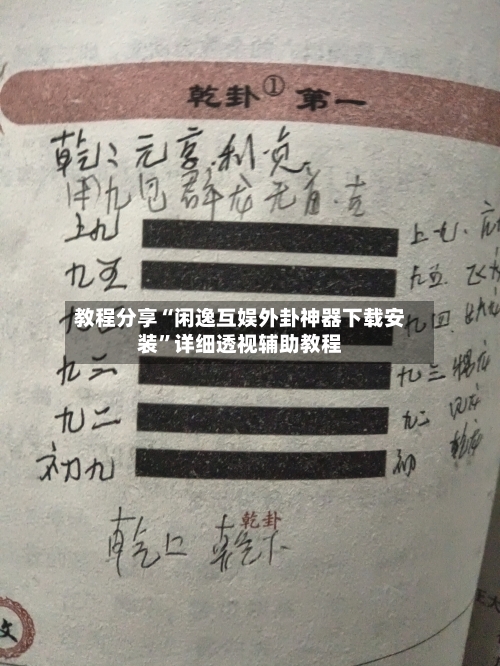 乾卦① 第一
乾：元亨.利.贞.
用九 见群龙无首.吉
上九
上九.
九五
九五.
教程分享“闲逸互娱外卦神器下载安
装”详细透视辅助教程
九四.
九三
九三 惕龙
九二
九二 见龙
初九
初 乾龙
乾卦
乾上 乾下
文